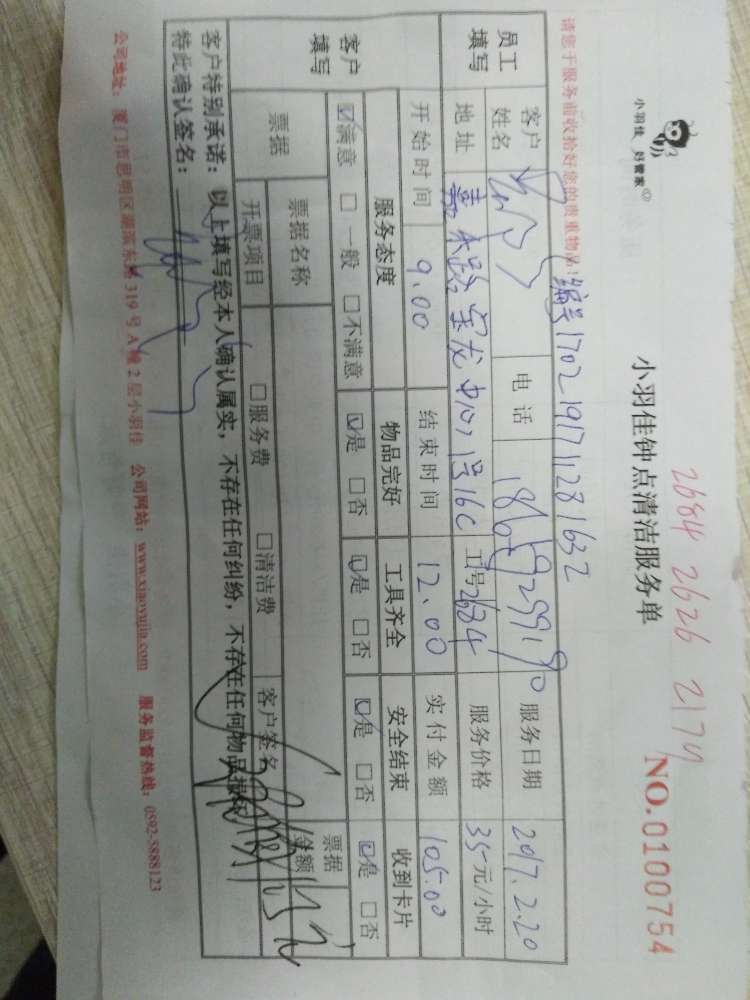 小羽佳 好管家
2684 2626 2179
小羽佳钟点清洁服务单
NO.0100754
请您于服务前收拾好您的贵重物品！
编号170219171281632
员工填写
客户姓名
电话
服务日期 2017.2.20
地址 嘉禾路宝龙中心1号16C
工号2684
服务价格 35元/小时
开始时间 9.00
结束时间 12.00
实付金额 105.00
客户填写
服务态度 物品完好 工具齐全 安全结束 收到卡片
☑满意 □一般 □不满意 ☑是 □否 ☑是 □否 ☑是 □否 ☑是 □否
票据
票据名称
票据金额
开票项目 □服务费 □清洁费 客户签名
客户特别承诺：以上填写经本人确认属实，不存在任何纠纷，不存在任何物品损坏
特此确认签名：
公司地址：厦门市思明区湖滨东路319号A幢2层小羽佳 公司网站：www.xiaoyujia.com 服务监督热线：0592-5888123